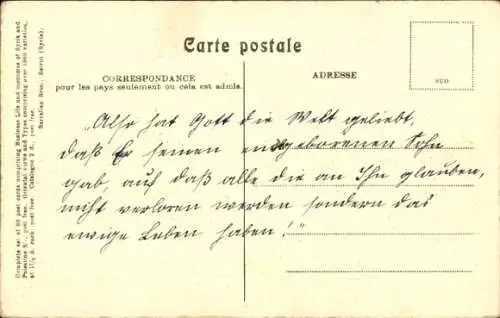 Carte postale
CORRESPONDANCE
pour les pays seulement ou cela est admis.
ADRESSE
„Also hat Gott die Welt geliebt,
daß Er seinen eingeborenen Sohn
gab, auf daß alle die an Ihn glauben,
nicht verloren werden sondern das
ewige Leben haben!"
Complete set of 96 post cards comprising Bedouin Life and costumes of Syria and
Palestine post free. Oriental views and Types comprising over 1500 varieties,
at 1½ d. each post free. Catalogue 2 d., post free.
Sarrafian Bros., Beirut (Syria).